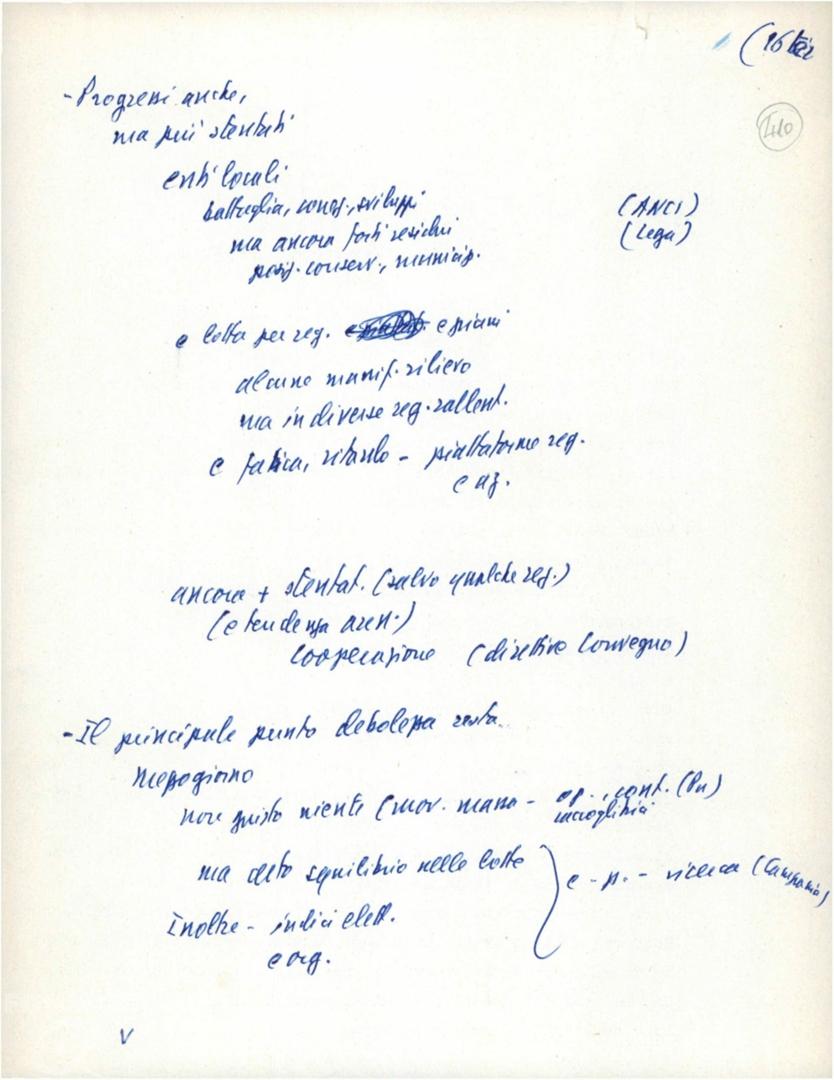 (16 ter
410
- Progressi anche,
ma più stentati
enti locali
battaglia, conq., sviluppi
(ANCI)
ma ancora forti residui
(Lega)
posiz. conserv., municip.
e lotta per reg. e piani
alcune manif. rilievo
ma in diverse reg. rallent.
e fatica, ritardo - piattaforme reg.
e az.
ancora + stentat. (salvo qualche reg.)
(e tendenza
cooperazione (direttive Convegno)
- Il principale punto debolezza resta
Mezzogiorno
non giusto niente (mov. massa - op., cont. (Pu)
ma dato squilibrio nelle lotte
e - p. - ricerca (Campania)
Inoltre - indici elett.
e org.
V